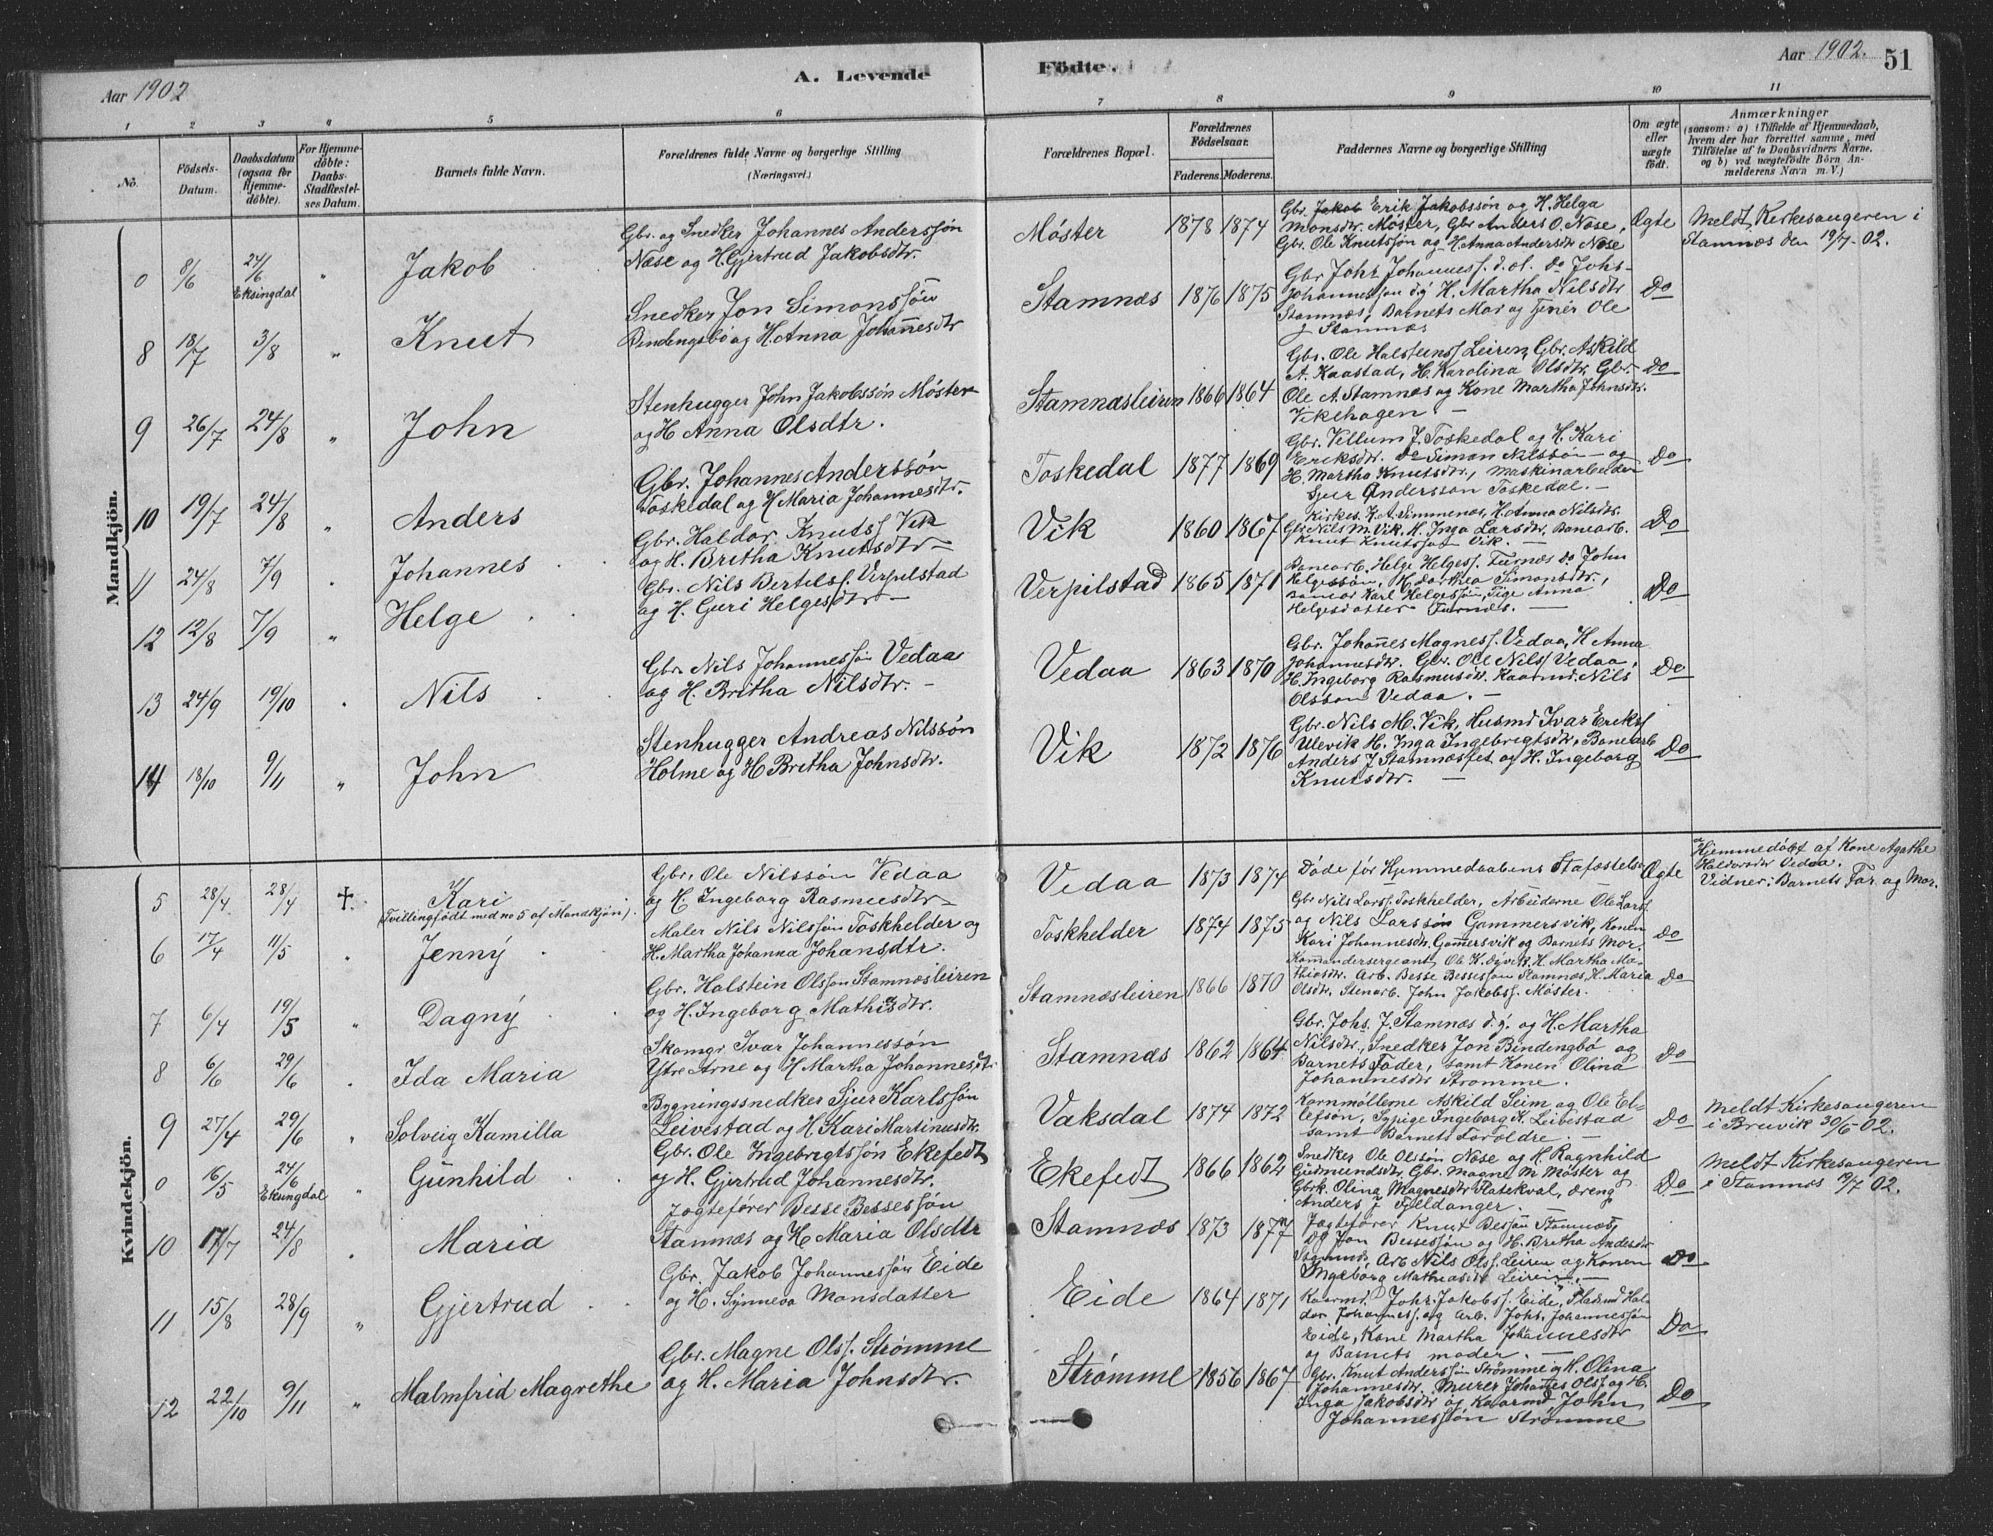 Aar 1902
A. Levende
Fødte.
Aar 1902.
51
1 2 3 4 5 6 7 8 9 10 11
No.
Födsels-Datum.
Daabsdatum (ogsaa for Hjemme-döbte).
For Hjemme-döbte: Daabs-Stadfæstel-ses Datum.
Barnets fulde Navn.
Forældrenes fulde Navne og borgerlige Stilling
(Næringsvei.)
Forældrenes Bopæl.
Forældrenes Födselsaar.
Faderens. Moderens.
Faddernes Navne og borgerlige Stilling
Om ægte eller uægte födt.
Anmærkninger
(saasom: a) i Tilfælde af Hjemmedaab,
hvem der har forrettet samme, med
Tilföielse af to Daabsvidners Navne,
og b) ved uægtefödte Börn An-
melderens Navn m. V.)
Mandkjön.
0 8/6 24/6 Eksingdal " Jakob
Gbr. og Snedker Johannes Anderssøn
Næse og H. Gjertrud Jakobsdtr.
Møster 1878 1874
Gbr. Jakob Erik Jakobssøn og H. Helga
Monsdtr. Møster, Gbr Anders O. Næse,
Gbr. Ole Knutssøn og H. Anna Andersdtr Næse
Ægte
Meldt Kirkesangeren i
Stamnæs den 19/7-02.
8 18/7 3/8 " Knut
Snedker Jon Simonssøn
Bindengsbø og H. Anna Johannesdtr
Stamnæs 1876 1875
Gbr Johs Johanness. d.æl. do Johs-
Johannessøn d.y H. Martha Nilsdtr
Stamnæs, Barnets Mor og Tjener Ole
J Stamnæs
Do
9 26/7 24/8 " John
Stenhugger John Jakobssøn Møster
og H Anna Olsdtr.
Stamnæsleiren 1866 1864
Gbr. Ole Halsteinss Leiren, Gbr. Askild
A. Kaastad, H. Karolina Olsdtr, Gbr.
Ole A. Stamnæs og Kone Martha Johnsdtr.
Vikehagen —
Do
10 19/7 24/8 " Anders
Gbr. Johannes Anderssøn
Toskedal og H Maria Johannesdtr.
Toskedal 1877 1869
Gbr. Vellum J. Toskedal og H. Kari
Eriksdtr. do Simon Nilssøn og
H. Martha Knutsdtr, Maskinarbeider
Sjur Anderssøn Toskedal. —
Do
11 24/8 7/9 " Johannes
Gbr. Haldor Knutss Vik
og H. Britha Knutsdtr —
Vik 1860 1867
Kirkes. K. A. Simmenæs, H. Anna Nilsdtr.
Gbr Nils M. Vik, H. Inga Larsdtr, Banearb.
Knut Knutssøn Vik. —
Do
12 12/8 7/9 " Helge
Gbr. Nils Bertels/. Verpilstad
og H. Guri Helgesdtr —
Verpilstad 1865 1871
Banearb. Helge Helgess. Furnæs do John
Helgessøn, H. Dorthea Simonsdtr,
Karl Helgessøn, Pige Anna
Helgesdatter Furnæs. —
Do
13 24/9 19/10 " Nils
Gbr. Nils Johannessøn Vedaa
og H. Britha Nilsdtr. —
Vedaa 1863 1870
Gbr. Johannes Magness. Vedaa, H Anna
Johannesdtr. Gbr. Ole Nilss Vedaa,
H. Ingeborg Rasmusdtr. Kaarmd. Nils
Olsson Vedaa. —
Do
14 18/10 9/11 " John
Stenhugger Andreas Nilssøn
Holme og H Britha Johnsdtr.
Vik 1872 1876
Gbr. Nils M. Vik, Husmd Ivar Eriks/
Ulevik H. Inga Ingebregtsdtr, Banearb
Anders J Stamnæsfet og H. Ingeborg
Knutsdtr. —
Do
Kvindekjön.
5 28/4 28/4 + Kari
(Tvillingfødt med no 5 af Mandkjøn).
Gbr. Ole Nilssøn Vedaa
og H. Ingeborg Rasmusdtr
Vedaa 1873 1874
Døde før Hjemmedaabens Stafæstelse
Ægte
Hjemmedøbt af Kone Agathe
Haldorsdtr Vedaa.
Vidner: Barnets Far og Mor.
6 17/4 11/5 " Jenny
Maler Nils Nilssøn Toskhelder og
H. Martha Johanna Johansdtr.
Toskhelder 1874 1875
Gbr Nils Larss Toskhelder, Arbeiderne Ole Larss
og Nils Larssøn Gammersvik, Konen
Kari Johannesdtr. Gamersvik og Barnets Mor.
Do
7 6/4 19/5 " Dagny
Gbr. Halstein Olssøn Stamnæsleiren
og H. Ingeborg Mathiasdtr.
Stamnæsleiren 1866 1870
Komandersergeant Ole K. H. Martha Ma-
thiasdtr. Arb. Besse Bessessøn Stamnæs, H. Maria
Olsdtr. Stenarb. John Jakobs/. Møster.
Do
8 6/6 29/6 " Ida Maria
Skomgr Ivar Johannessøn
Ytre Arne og H Martha Johannesdtr.
Stamnæs 1862 1864
Gbr. Johs. J. Stamnæs d.y. og H. Martha
Nilsdtr, Snedker Jon Bindingbø og
Barnets Fader, samt Konen Olina
Johannesdtr Strømme.
Do
9 27/4 29/6 " Solveig Kamilla
Bygningssnedker Sjur Karlssøn
Leivestad og H Kari Martinusdtr.
Vaksdal 1874 1872
Kornmøllerne Askild Seim og Ole El-
lefsøn, Ingeborg K. Leivestad
samt Barnets Forældre. —
Do
Meldt Kirkesangeren
i Bruvik 30/6-02.
0 16/5 24/6 Eksingdal " Gunhild
Gbr. Ole Ingebregtssøn Ekefedt
og H. Gjertrud Johannesdtr.
Ekefedt 1866 1862
Snedker Ole Olssøn Næse og H Ragnhild
Gudmundsdtr, Gbr. Magne M Møster og
Gbrk. Olina Magnesdtr Flatekval, dreng
Anders J Fjeldanger. —
Do
Meldt Kirkesangeren
i Stamnæs 19/7 02.
10 17/7 24/8 " Maria
Jagtefører Besse Bessessøn
Stamnæs og H Maria Olsdtr
Stamnæs 1873 1877
Jagtefører Knut Bessøn Stamnæs,
Do Jon Bessessøn og H. Britha Andersdtr
Arb Nils Ols/. Leiren og Konen
Ingeborg Mathiasdtr Leiren. —
Do
11 15/8 28/9 " Gjertrud
Gbr. Jakob Johannessøn Eide
og H. Synneva Monsdatter
Eide 1864 1871
Kaarmd. Johs. Jakobss. Eide, Pladsmd Hal-
dor Johanness. og Arb. Johs. Johannessøn
Eide, Kone Martha Johannesdtr
og Barnets moder. —
Do
12 22/10 9/11 " Malmfrid Magrethe
Gbr. Magne Olss. Strømme
og H. Maria Johnsdtr.
Strømme 1856 1867
Gbr. Knut Anderssøn Strømme og H. Olina
Johannesdtr. Murer Johannes Olss og H.
Inga Jakobsdtr og Kaarmd John
Johannessøn Strømme
Do